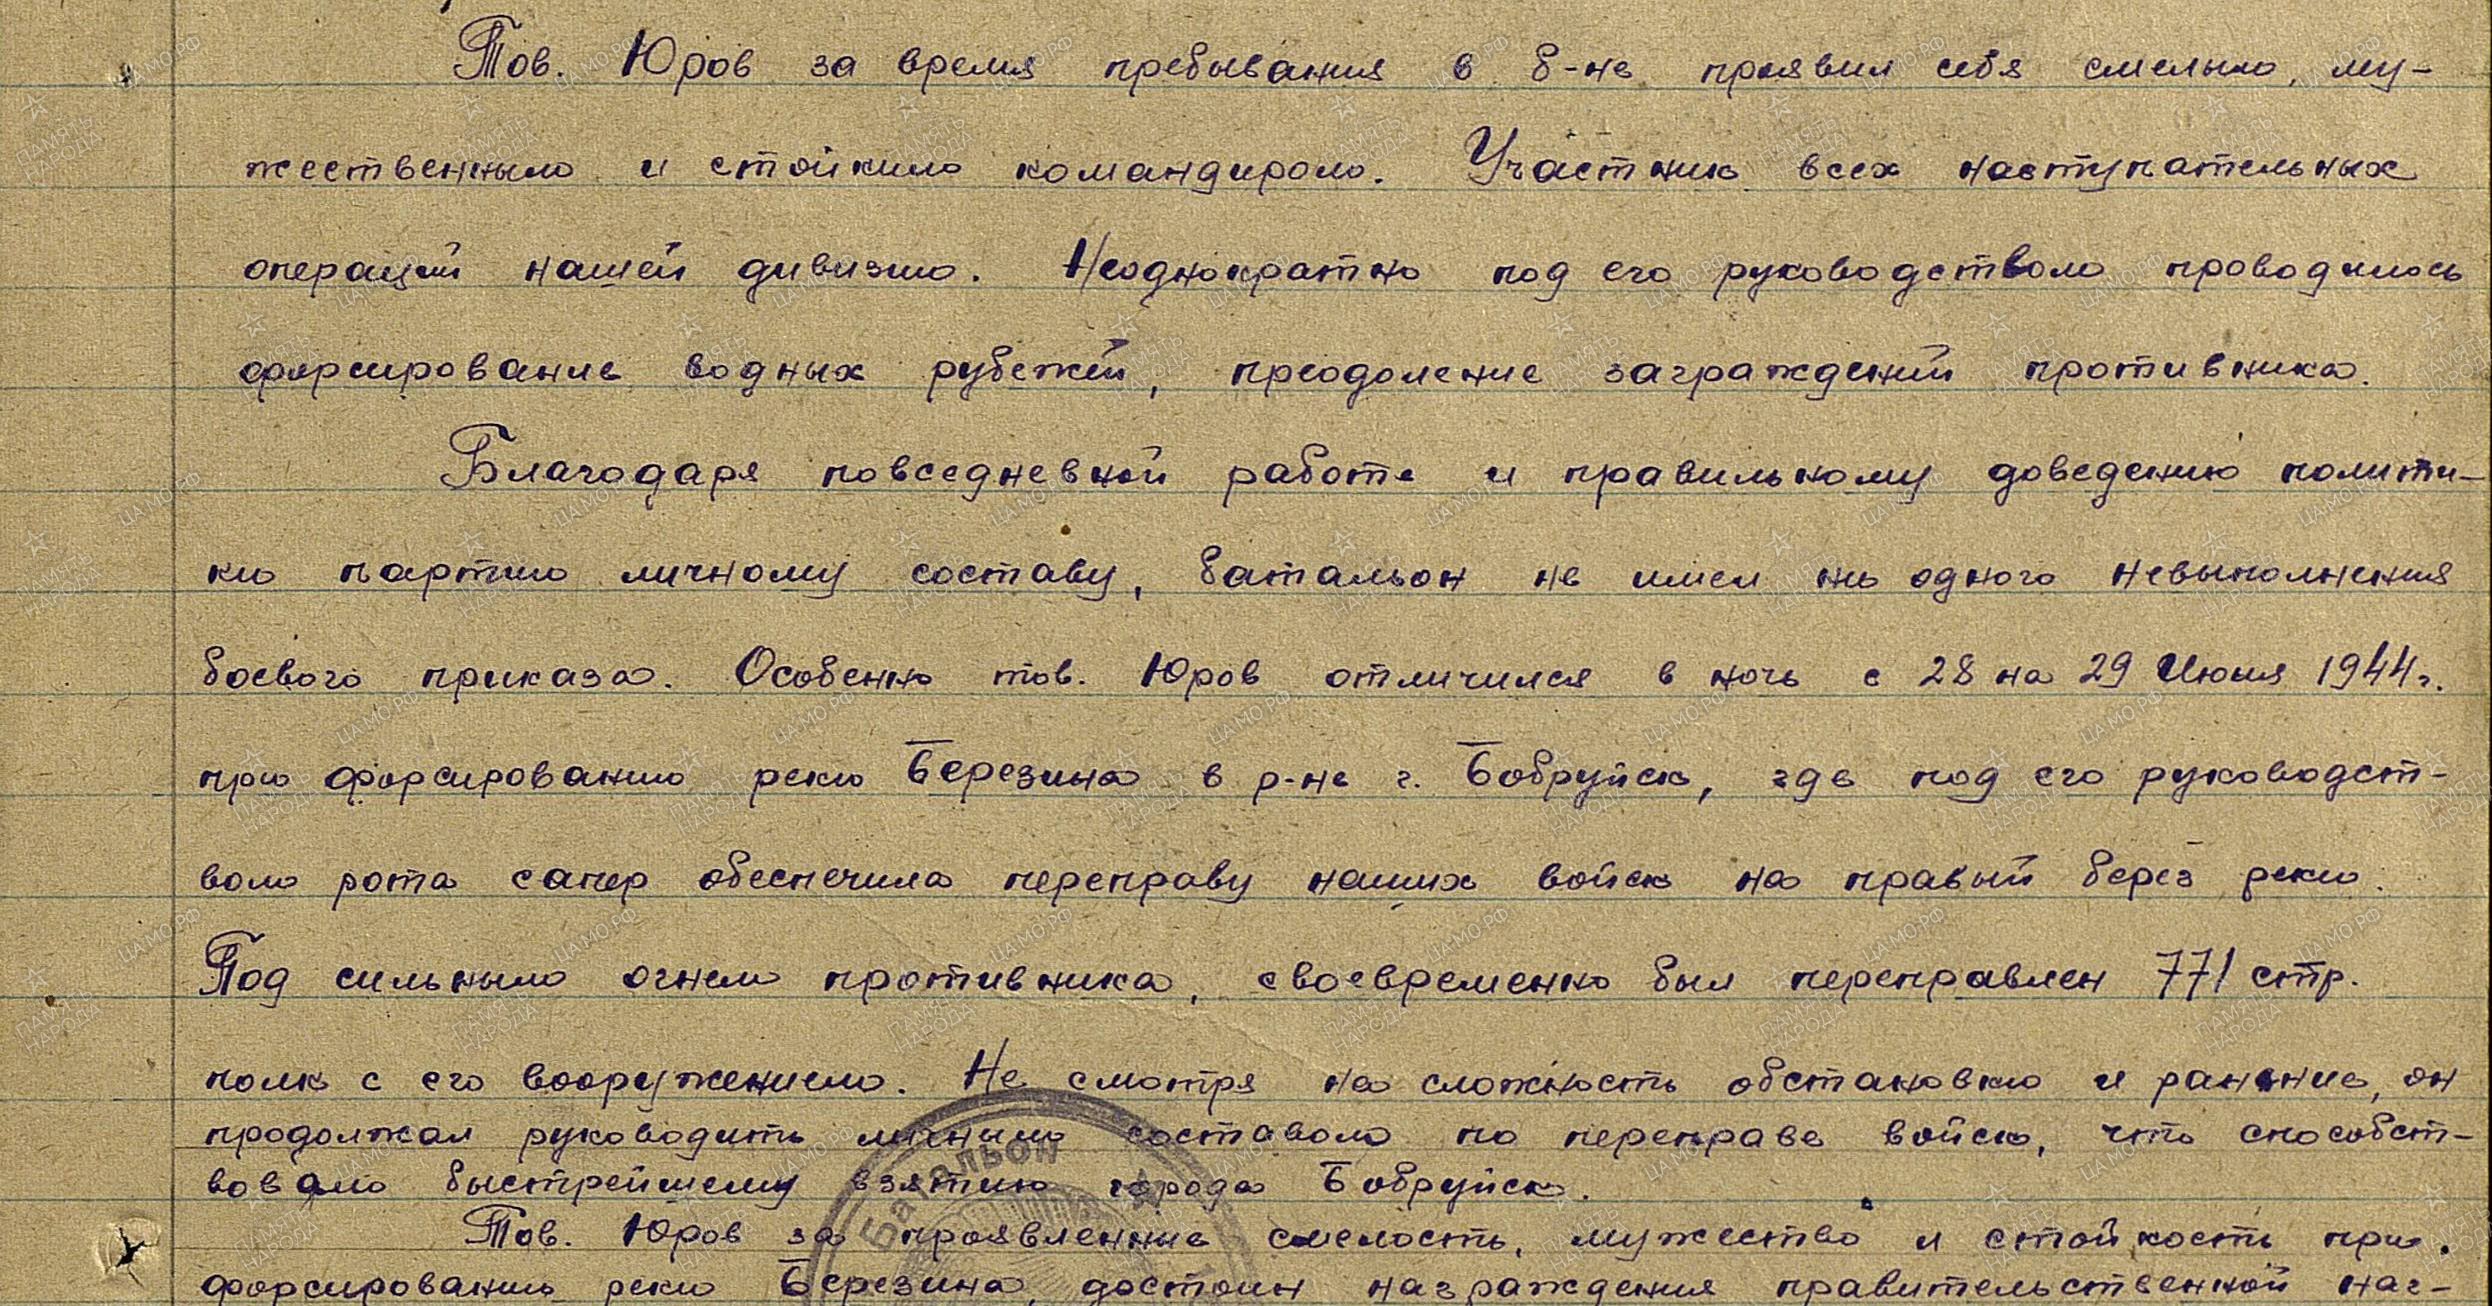 Тов. Юров за время пребывания в б-не проявил себя смелым, му-
жественным и стойким командиром. Участник всех наступательных
операций нашей дивизии. Неоднократно под его руководством проводилось
форсирование водных рубежей, преодоление заграждений противника.
Благодаря повседневной работе и правильному доведению полити-
ки партии личному составу, батальон не имел ни одного невыполнения
боевого приказа. Особенно тов. Юров отличился в ночь с 28 на 29 Июня 1944 г.
при форсировании реки Березина в р-не г. Бобруйск, где под его руководст-
вом рота сапер обеспечила переправу наших войск на правый берег реки.
Под сильным огнем противника, своевременно был переправлен 771 стр.
полк с его вооружением. Не смотря на сложность обстановки и ранение, он
продолжал руководить личным составом по переправе войск, что способст-
вовало быстрейшему взятию города Бобруйск.
Тов. Юров за проявленные смелость, мужество и стойкость при
форсировании реки Березина, достоин награждения правительственной наг-
Батальон
ПАМЯТЬ НАРОДА
ЦАМО.РФ